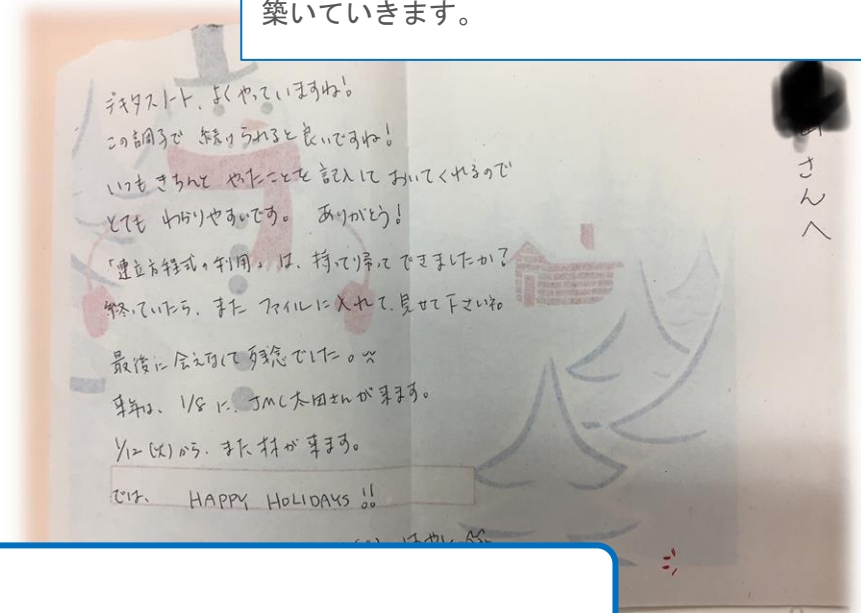 築いていきます。
さんへ
デキタスノート、よくやっていますね!
この調子で 続けられると良いですね!
いつも きちんと やったことを 記入して おいてくれるので
とても わかりやすいです。 ありがとう!
「連立方程式の利用」は、持って帰って できましたか?
終っていたら、また ファイルに入れて、見せて下さいね。
最後に会えなくて 残念でした。
来年は、1/8 に、JMC太田さんが来ます。
1/12 (火)から、また 林が 来ます。
では、 HAPPY HOLIDAYS !!
はやし